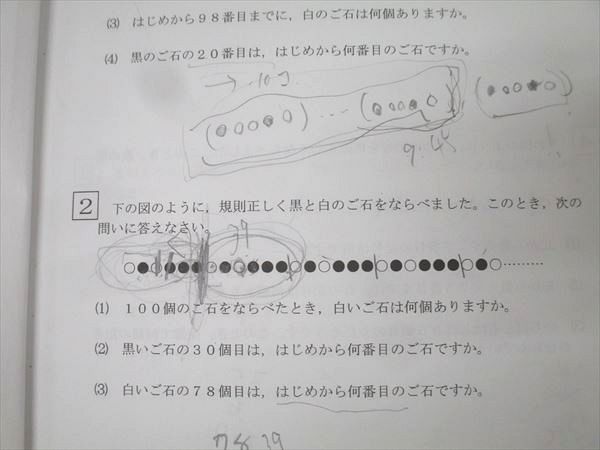 (3) はじめから98番目までに，白のご石は何個ありますか。
(4) 黒のご石の20番目は，はじめから何番目のご石ですか。
2 下の図のように，規則正しく黒と白のご石をならべました。このとき，次の
問いに答えなさい。
39
(1) 100個のご石をならべたとき，白いご石は何個ありますか。
(2) 黒いご石の30個目は，はじめから何番目のご石ですか。
(3) 白いご石の78個目は，はじめから何番目のご石ですか。
78 39